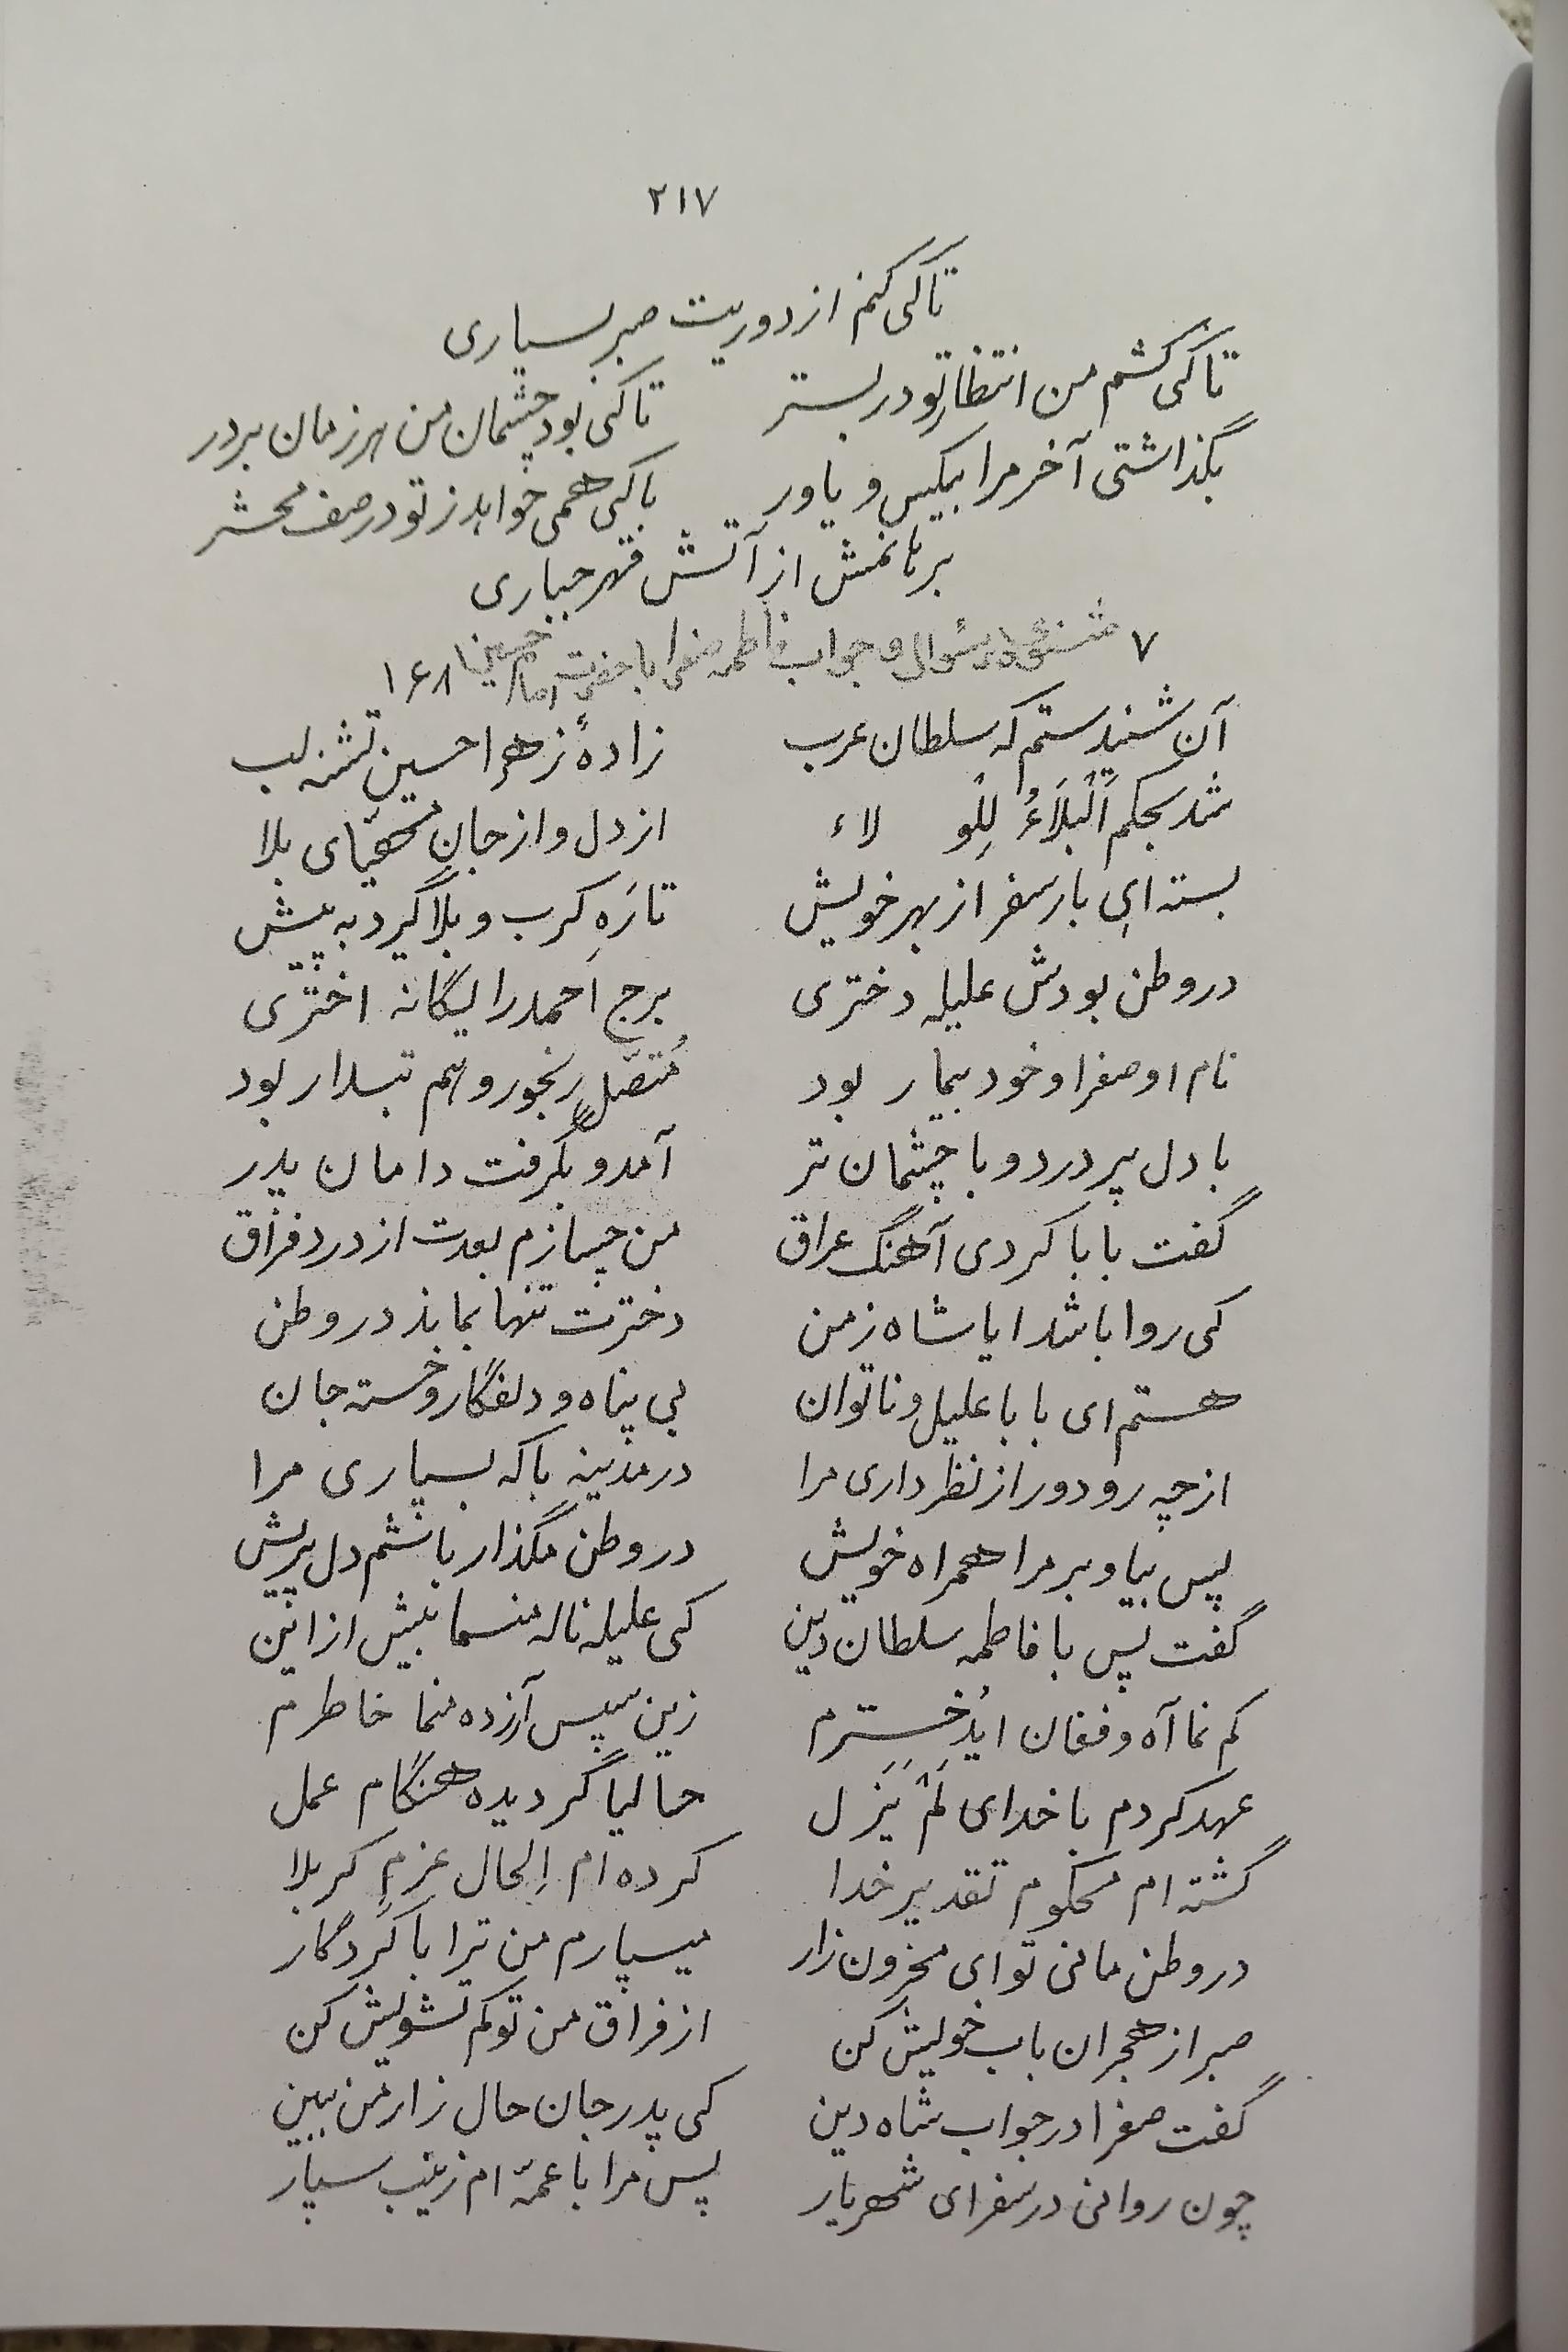 ۲۱۷
تا کی کنم از دوریت صبر بسیاری
تا کی کشم من انتظار تو در بستر تا کی بود چشمان من هر زمان بر در
بگذاشتی آخر مرا بیکس و یاور باکی همی خواهد ز تو در صف محشر
برهانمش از آتش قهر جباری
۷ مثنوی در سئوال و جواب فاطمه صغرا با حضرت امام حسین ۱۶۸
آن شنیدستم که سلطان عرب زادهٔ زهرا حسین تشنه لب
شد بحکم اَلْبَلاَءُ لِلْو لاء از دل و از جان مهیّای بلا
بسته ای بار سفر از بهر خویش تا رَهِ کرب و بلا گیرد به پیش
در وطن بودش علیله دختری برج احمد را یگانه اختری
نام او صغرا و خود بیمار بود مُتصّل رنجور و هم تبدار بود
با دل پر درد و با چشمان تر آمد و بگرفت دامان پدر
گفت بابا کردی آهنگ عراق من چسازم بعدت از درد فراق
کی روا باشد ایا شاه زمن دخترت تنها بماند در وطن
هستم ای بابا علیل و ناتوان بی پناه و دلفگار و خسته جان
از چه رو دور از نظر داری مرا در مدینه باکه بسپاری مرا
پس بیا و بر مرا همراه خویش در وطن مگذار باشم دل پریش
گفت پس با فاطمه سلطان دین کی علیله ناله منما بیش از این
کم نما آه و فغان ایدُخترم زین سپس آزرده منما خاطرم
عهد کردم با خدای لَمْ یَزَل حالیا گردیده هنگام عمل
گشته ام محکوم تقدیر خدا کرده ام اِلحال عزمِ کربلا
در وطن مانی تو ای محزون زار میسپارم من ترا با کِردگار
صبر از هجران باب خویش کن از فراق من تو کم تشویش کن
گفت صغرا در جواب شاه دین کی پدر جان حال زار من ببین
چون روانی در سفر ای شهریار پس مرا با عمّه ام زینب سپار